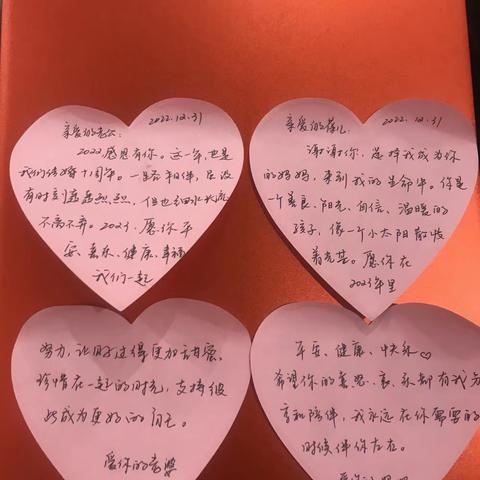 2022.12.31
亲爱的老公:
2022感恩有你。这一年,也是
我们结婚十周年。一生相伴,虽没
有时刻轰轰烈烈,但也细水长流
不离不弃。2023,愿你平
安、喜乐、健康、幸福
我们一起
努力,让日子过得更加甜蜜、
珍惜在一起的时光,支持彼
此成为更好的自己。
爱你的老婆
2022.12.31
亲爱的
谢谢你,选择我成为你
的妈妈,来到我的生命中。你是
一个善良、阳光、自信、温暖的
孩子,像一个小太阳散发
着光芒。愿你在
2023年里
平安、健康、快乐♡
希望你的喜怒、哀、乐都有我分
享和陪伴,我永远在你需要的
时候伴你左右。
爱你的妈妈